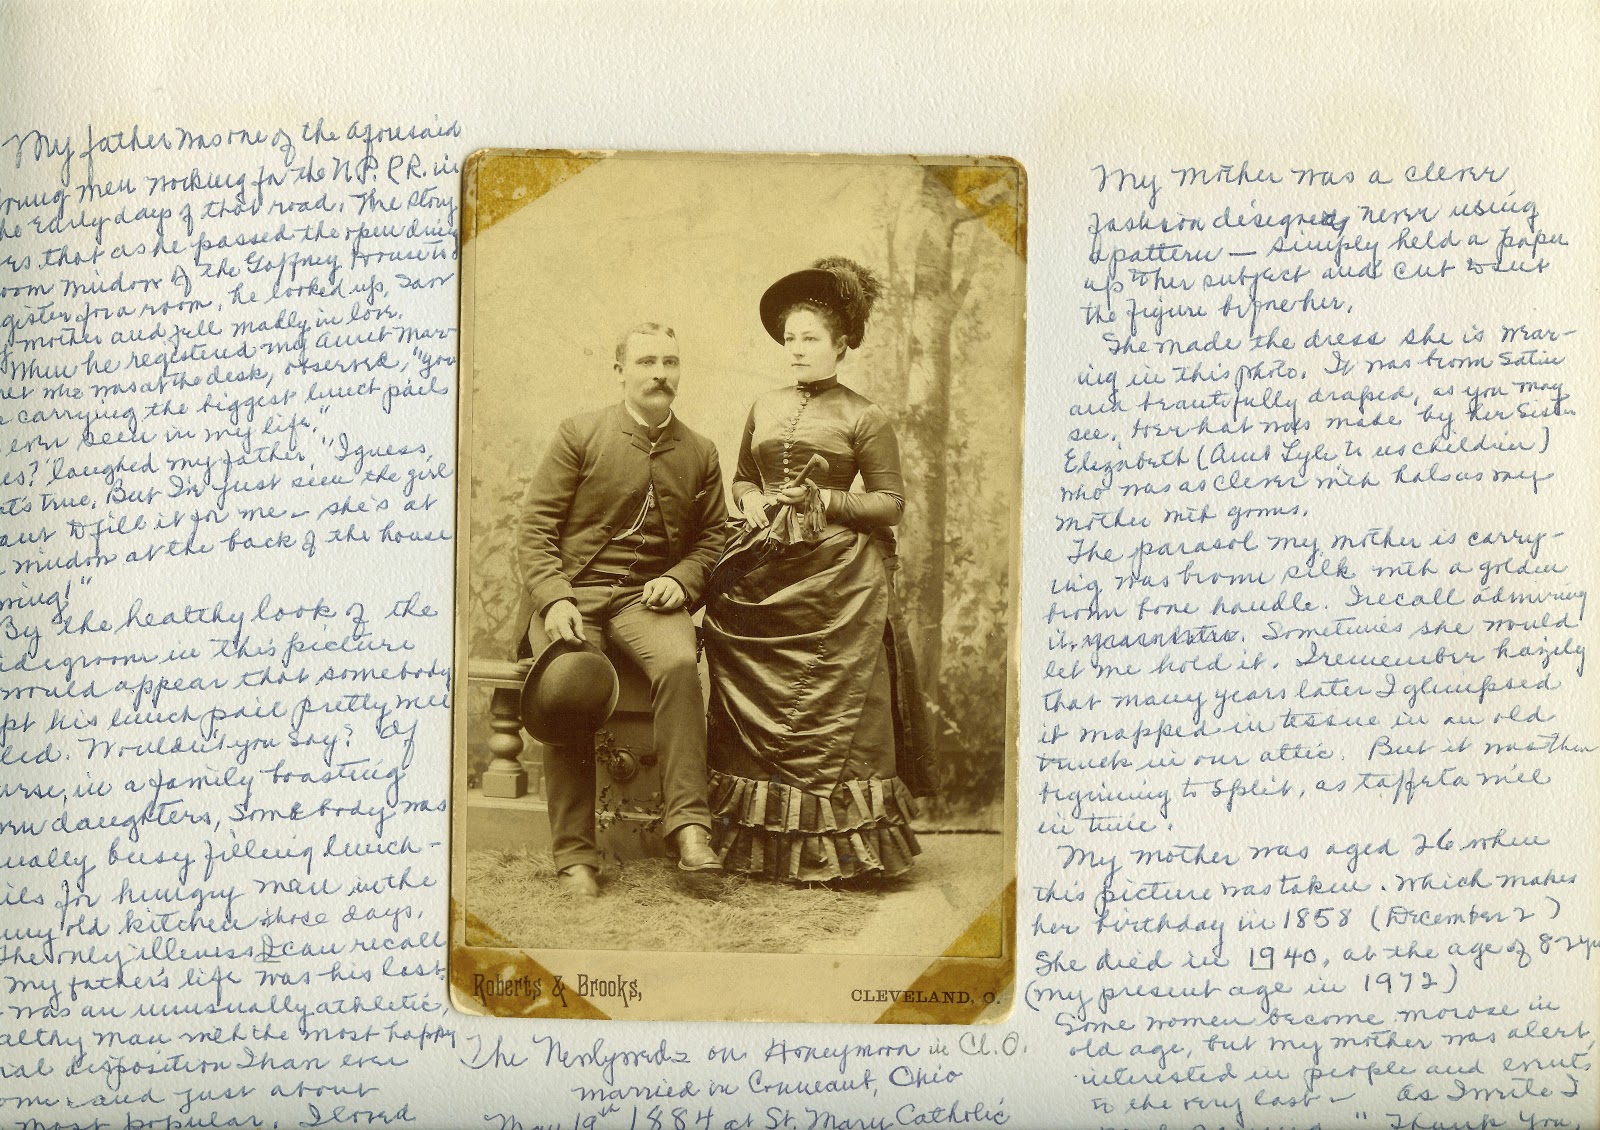 My father was one of the aforesaid
young men working for the N.P. R.R. in
the early days of that road. The story
es that as he passed the open dining
oom window of the Gaffney House to
gister for a room, he looked up, saw
mother and fell madly in love.
When he registered my Aunt Mar-
ret who was at the desk, observed, "you
carrying the biggest lunch pails
ever seen in my life."
es?" laughed my father "I guess,
at's true. But I've just seen the girl
ant to fill it for me — she's at
window at the back of the house
ning!"
By the healthy look of the
idegroom in this picture
would appear that somebody
pt his lunch pail pretty well
led. Wouldn't you say? Of
urse, in a family boasting
en daughters, Somebody was
ually busy filling lunch-
ils for hungry men in the
any old kitchen those days.
The only illness I can recall
My father's life was his last.
was an unusually athletic,
althy man with the most happy
ial disposition I han ever
ome and just about
most popular. I loved
Roberts & Brooks,
CLEVELAND, O.
The Newlyweds on Honeymoon in Cl. O.
married in Conneaut, Ohio
May 19th 1884 at St. Mary Catholic
My mother was a clever
fashion designer, never using
a pattern — simply held a paper
up to her subject and cut to suit
the figure before her.
She made the dress she is wear-
ing in this photo. It was brown satin
and beautifully draped, as you may
see. Her hat was made by her sister
Elizabeth (Aunt Lyle to us children)
who was as clever with hats as my
mother with gowns.
The parasol my mother is carry-
ing was brown silk with a golden
brown bone handle. I recall admiring
it. Sometimes she would
let me hold it. I remember hazily
that many years later I glimpsed
it wrapped in tissue in an old
trunk in our attic. But it was then
beginning to split, as taffeta will
in time.
My mother was aged 26 when
this picture was taken. Which makes
her birthday in 1858 (December 2)
She died in 1940, at the age of 82 yr
(my present age in 1972)
Some women become morose in
old age, but my mother was alert,
interested in people and events
to the very last — As I write I
"Thank you,